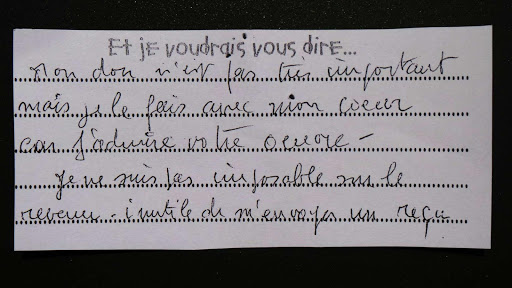 Et je voudrais vous dire...
Mon don n'est pas très important
mais je le fais avec mon coeur
car j'admire votre oeuvre –
Je ne suis pas imposable sur le
revenu - inutile de m'envoyer un reçu